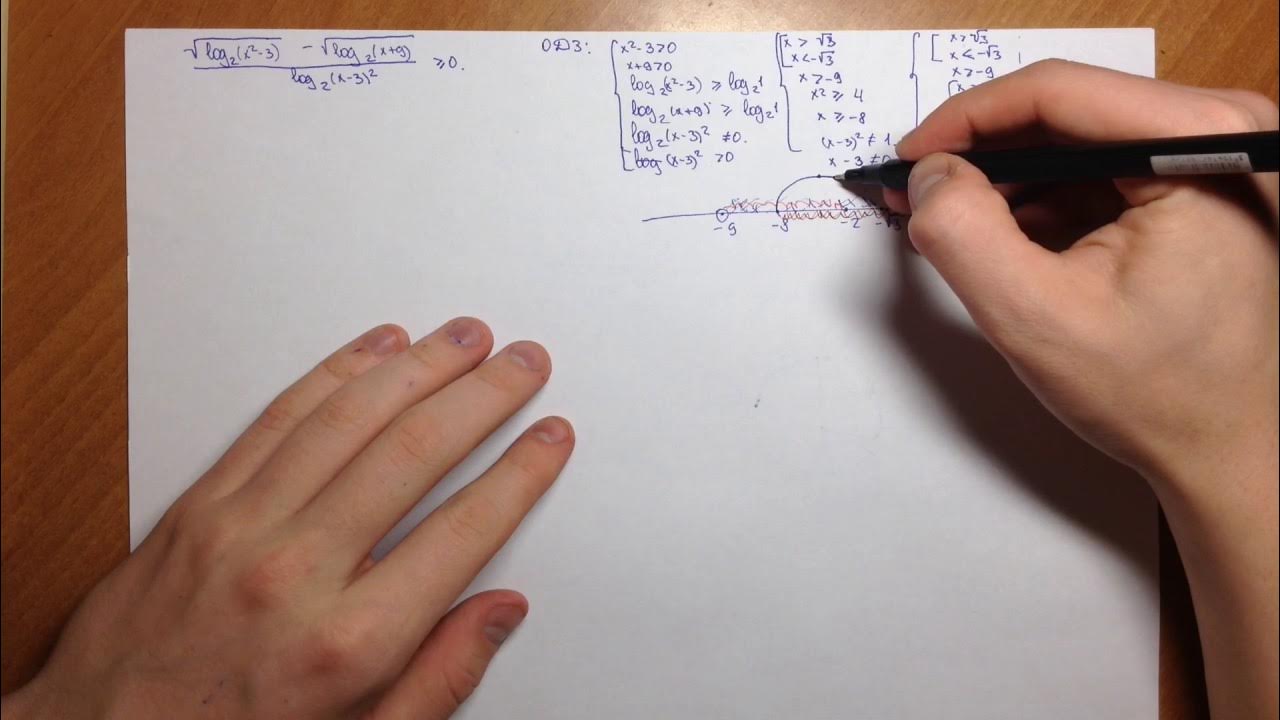 √log₂(x²-3) - √log₂(x+9)
log₂(x-3)² ≥0.
ОДЗ:
x²-3>0
x+9>0
log₂(x²-3) ≥ log₂1
log₂(x+9) ≥ log₂1
log₂(x-3)² ≠0.
log (x-3)² >0
x > √3
x<-√3
x>-9
x² ≥ 4
x ≥ -8
(x-3)² ≠ 1
x - 3 ≠0
x>√3
x<-√3
x>-9
-9 -8 -2 -√3